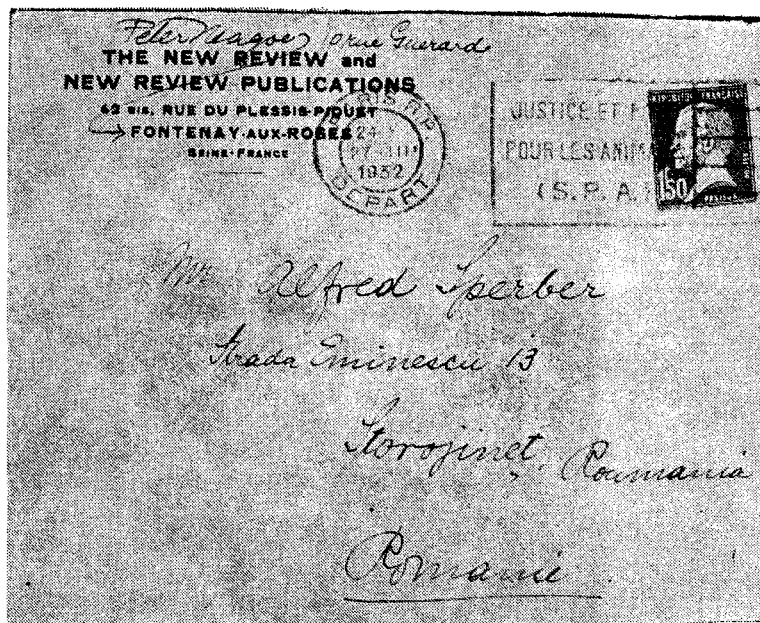 Peter Neagoe rue Guerard
THE NEW REVIEW and
NEW REVIEW PUBLICATIONS
42 BIS, RUE DU PLESSIS-PIQUET
FONTENAY-AUX-ROSES
SEINE-FRANCE
PARIS R.P.
1932
DEPART
JUSTICE ET
POUR LES ANIM
(S.P.A.
1F50
Mr Alfred Sperber
Strada Eminescu 13
Storojinet, Roumania
Romanie